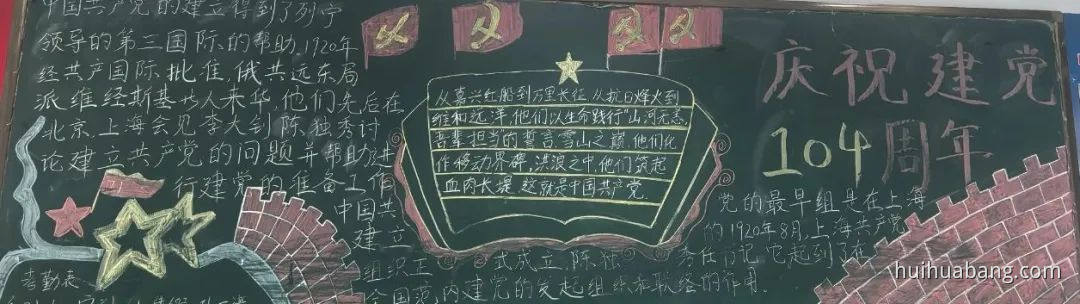 中国共产党的建立得到了列宁
领导的第三国际的帮助,1920年
经共产国际批准,俄共远东局
派维经斯基等人来华,他们先后在
北京、上海会见李大钊、陈独秀讨
论建立共产党的问题并帮助进
行建党的准备工作
从嘉兴红船到万里长征,从抗日烽火到
维和远洋,他们以生命践行"山河无恙,
吾辈担当的誓言,雪山之巅,他们化
作移动界碑,洪浪之中,他们筑起
血肉长堤,这就是中国共产党.
庆祝建党
104周年
中国共
党的最早组是在上海
建立
的1920年8月,上海共产党
组织正式成立,陈独秀任书记,它起到了在
全国范,内建党的发起组织和联络的作用.
考勤表
huihuabang.com